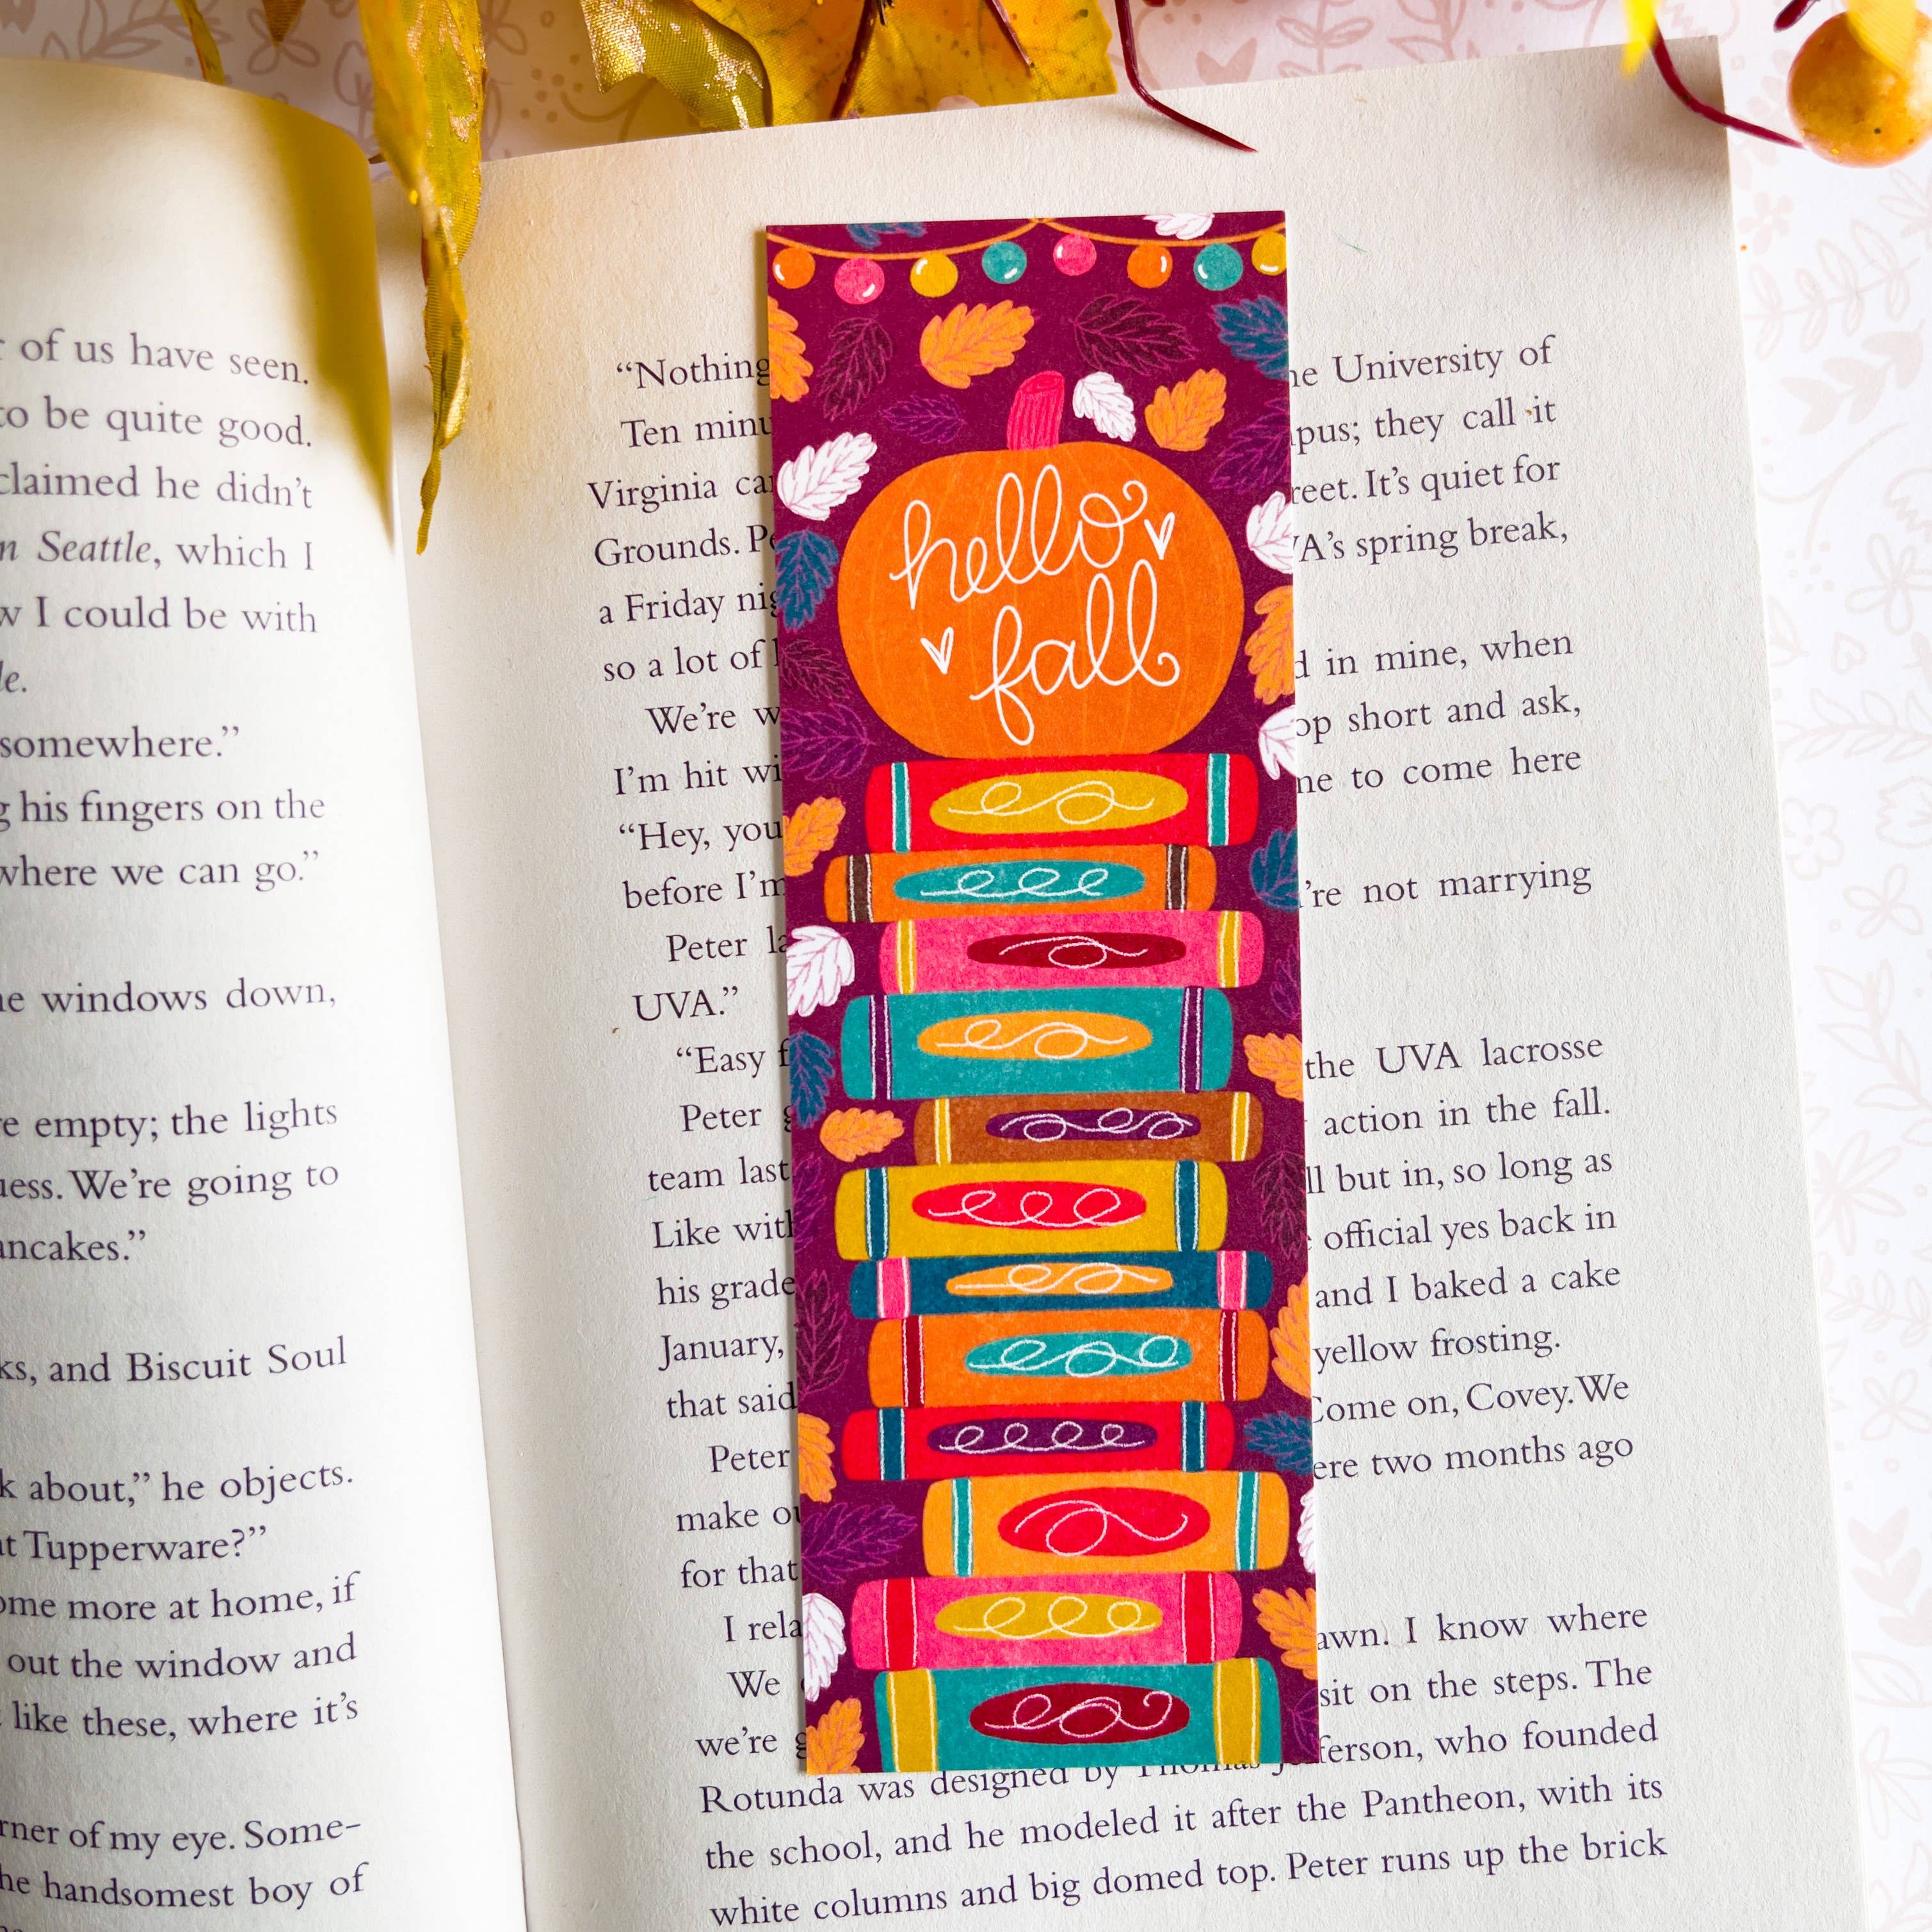 of us have seen.
to be quite good.
claimed he didn't
Seattle, which I
I could be with
somewhere."
his fingers on the
where we can go."
windows down,
empty; the lights
We're going to
and Biscuit Soul
about," he objects.
Tupperware?"
more at home, if
out the window and
like these, where it's
of my eye. Some-
handsomest boy of
"Nothing
University of
Ten
they call it
Virginia
Grounds.
It's quiet for
a Friday
spring break,
so a lot of
in mine, when
We're
short and ask,
I'm hit
to come here
"Hey, you
before I'm
not marrying
Peter
UVA."
"Easy
the UVA lacrosse
Peter
action in the fall.
team last
but in, so long as
Like
official yes back in
his grade
and I baked a cake
January,
yellow frosting.
that said
Come on, Covey. We
Peter
two months ago
make
for that
I
I know where
We
sit on the steps. The
we're
who founded
Rotunda was designed by Thomas Jefferson
the school, and he modeled it after the Pantheon, with its
white columns and big domed top. Peter runs up the brick
hello
fall